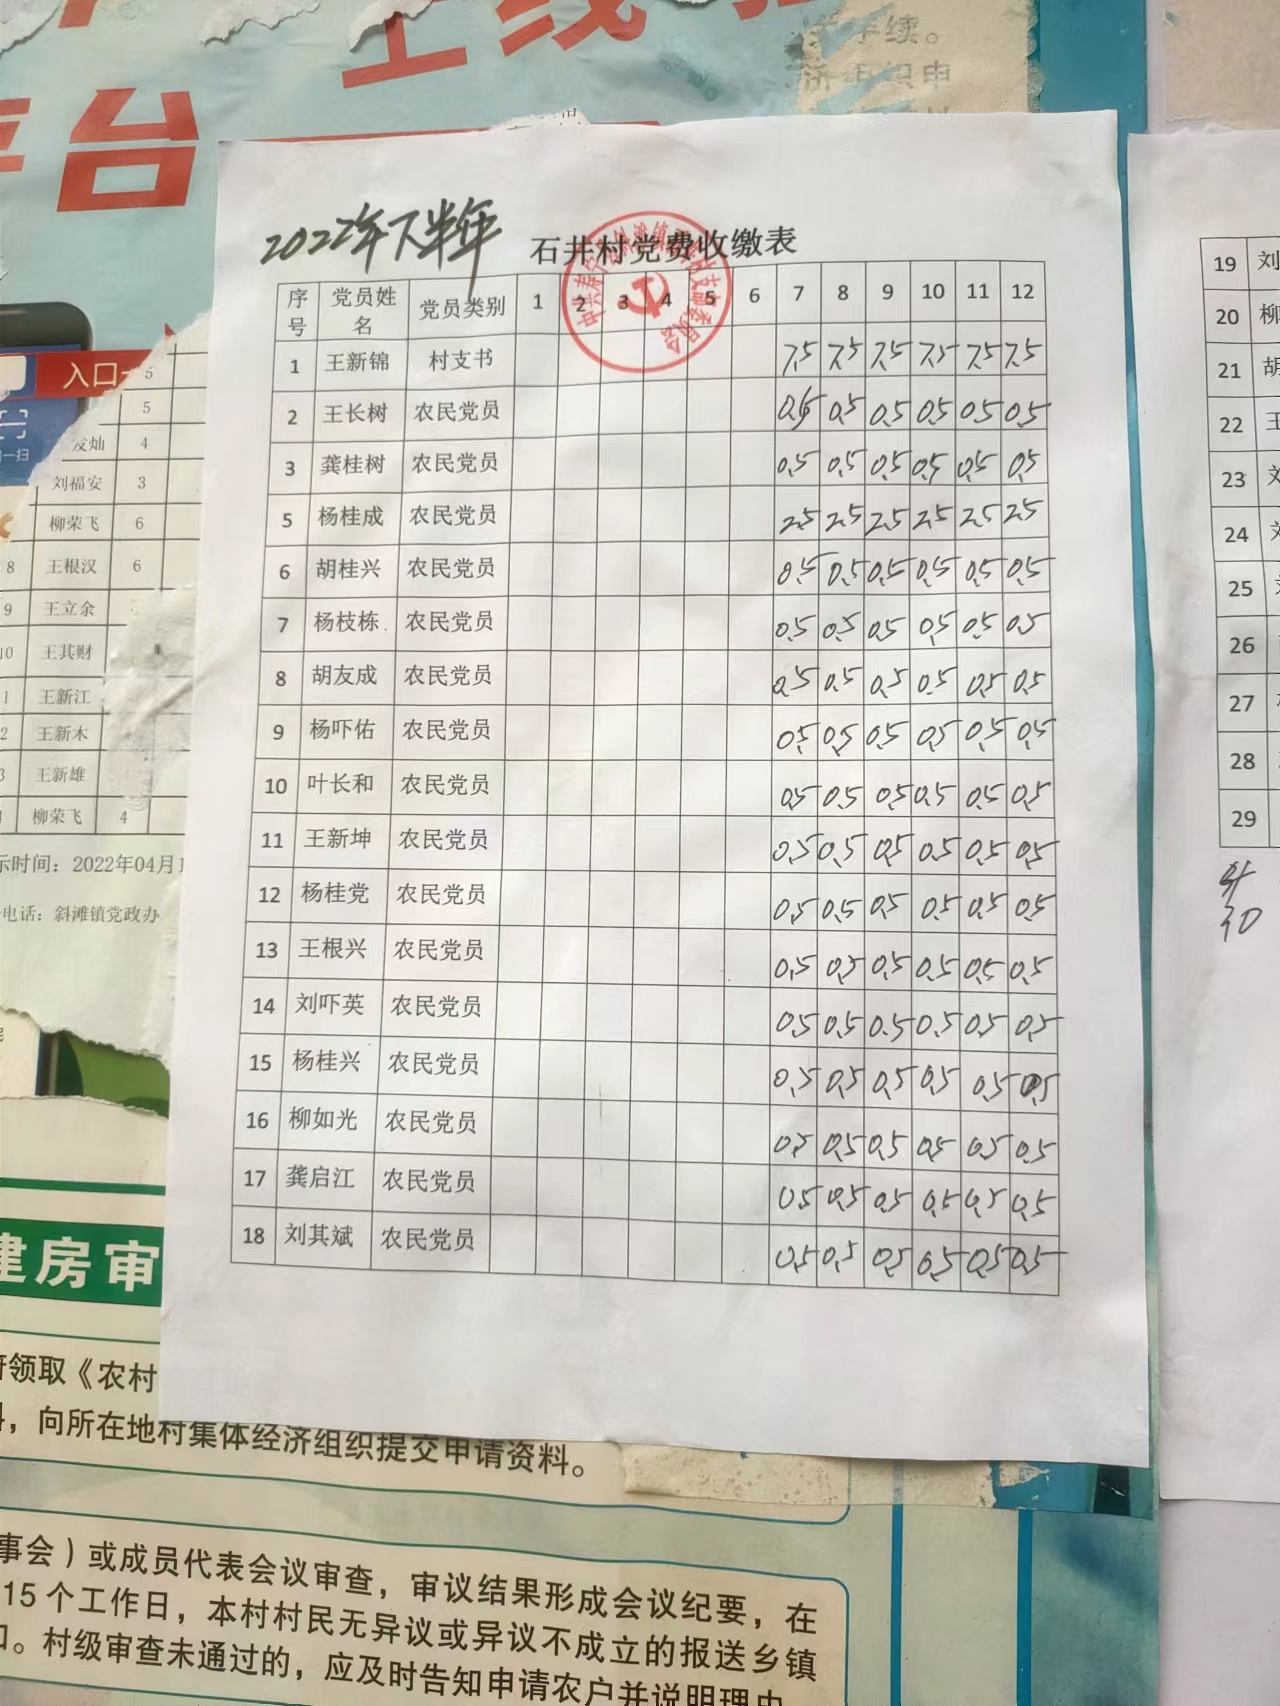 上线
平台
手续。
济组织申
2022年下半年 石井村党费收缴表
序号 党员姓名 党员类别 1 2 3 4 5 6 7 8 9 10 11 12
1 王新锦 村支书 7.5 7.5 7.5 7.5 7.5 7.5
2 王长树 农民党员 0.5 0.5 0.5 0.5 0.5 0.5
3 龚桂树 农民党员 0.5 0.5 0.5 0.5 0.5 0.5
5 杨桂成 农民党员 2.5 2.5 2.5 2.5 2.5 2.5
6 胡桂兴 农民党员 0.5 0.5 0.5 0.5 0.5 0.5
7 杨枝栋 农民党员 0.5 0.5 0.5 0.5 0.5 0.5
8 胡友成 农民党员 0.5 0.5 0.5 0.5 0.5 0.5
9 杨吓佑 农民党员 0.5 0.5 0.5 0.5 0.5 0.5
10 叶长和 农民党员 0.5 0.5 0.5 0.5 0.5 0.5
11 王新坤 农民党员 0.5 0.5 0.5 0.5 0.5 0.5
12 杨桂党 农民党员 0.5 0.5 0.5 0.5 0.5 0.5
13 王根兴 农民党员 0.5 0.5 0.5 0.5 0.5 0.5
14 刘吓英 农民党员 0.5 0.5 0.5 0.5 0.5 0.5
15 杨桂兴 农民党员 0.5 0.5 0.5 0.5 0.5 0.5
16 柳如光 农民党员 0.5 0.5 0.5 0.5 0.5 0.5
17 龚启江 农民党员 0.5 0.5 0.5 0.5 0.5 0.5
18 刘其斌 农民党员 0.5 0.5 0.5 0.5 0.5 0.5
入口
5
5
发灿 4
刘福安 3
柳荣飞 6
8 王根汉 6
9 王立余
10 王其财
1 王新江
2 王新木
3 王新雄
柳荣飞 4
示时间：2022年04月1
电话：斜滩镇党政办
19 刘
20 柳
21 胡
22 王
23 刘
24 刘
25
26
27
28
29
30
建房审
领取《农村
，向所在地村集体经济组织提交申请资料。
事会）或成员代表会议审查，审议结果形成会议纪要，在
15个工作日，本村村民无异议或异议不成立的报送乡镇
。村级审查未通过的，应及时告知申请农户并说明理由